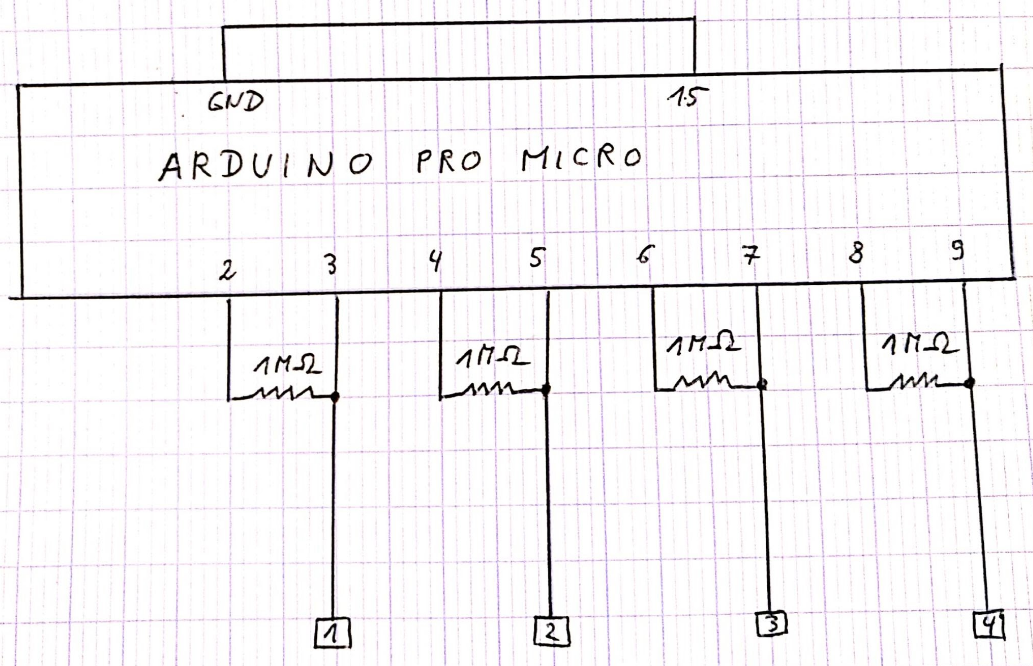 GND 15
ARDUINO PRO MICRO
2 3 4 5 6 7 8 9
1MΩ 1MΩ 1MΩ 1MΩ
1 2 3 4